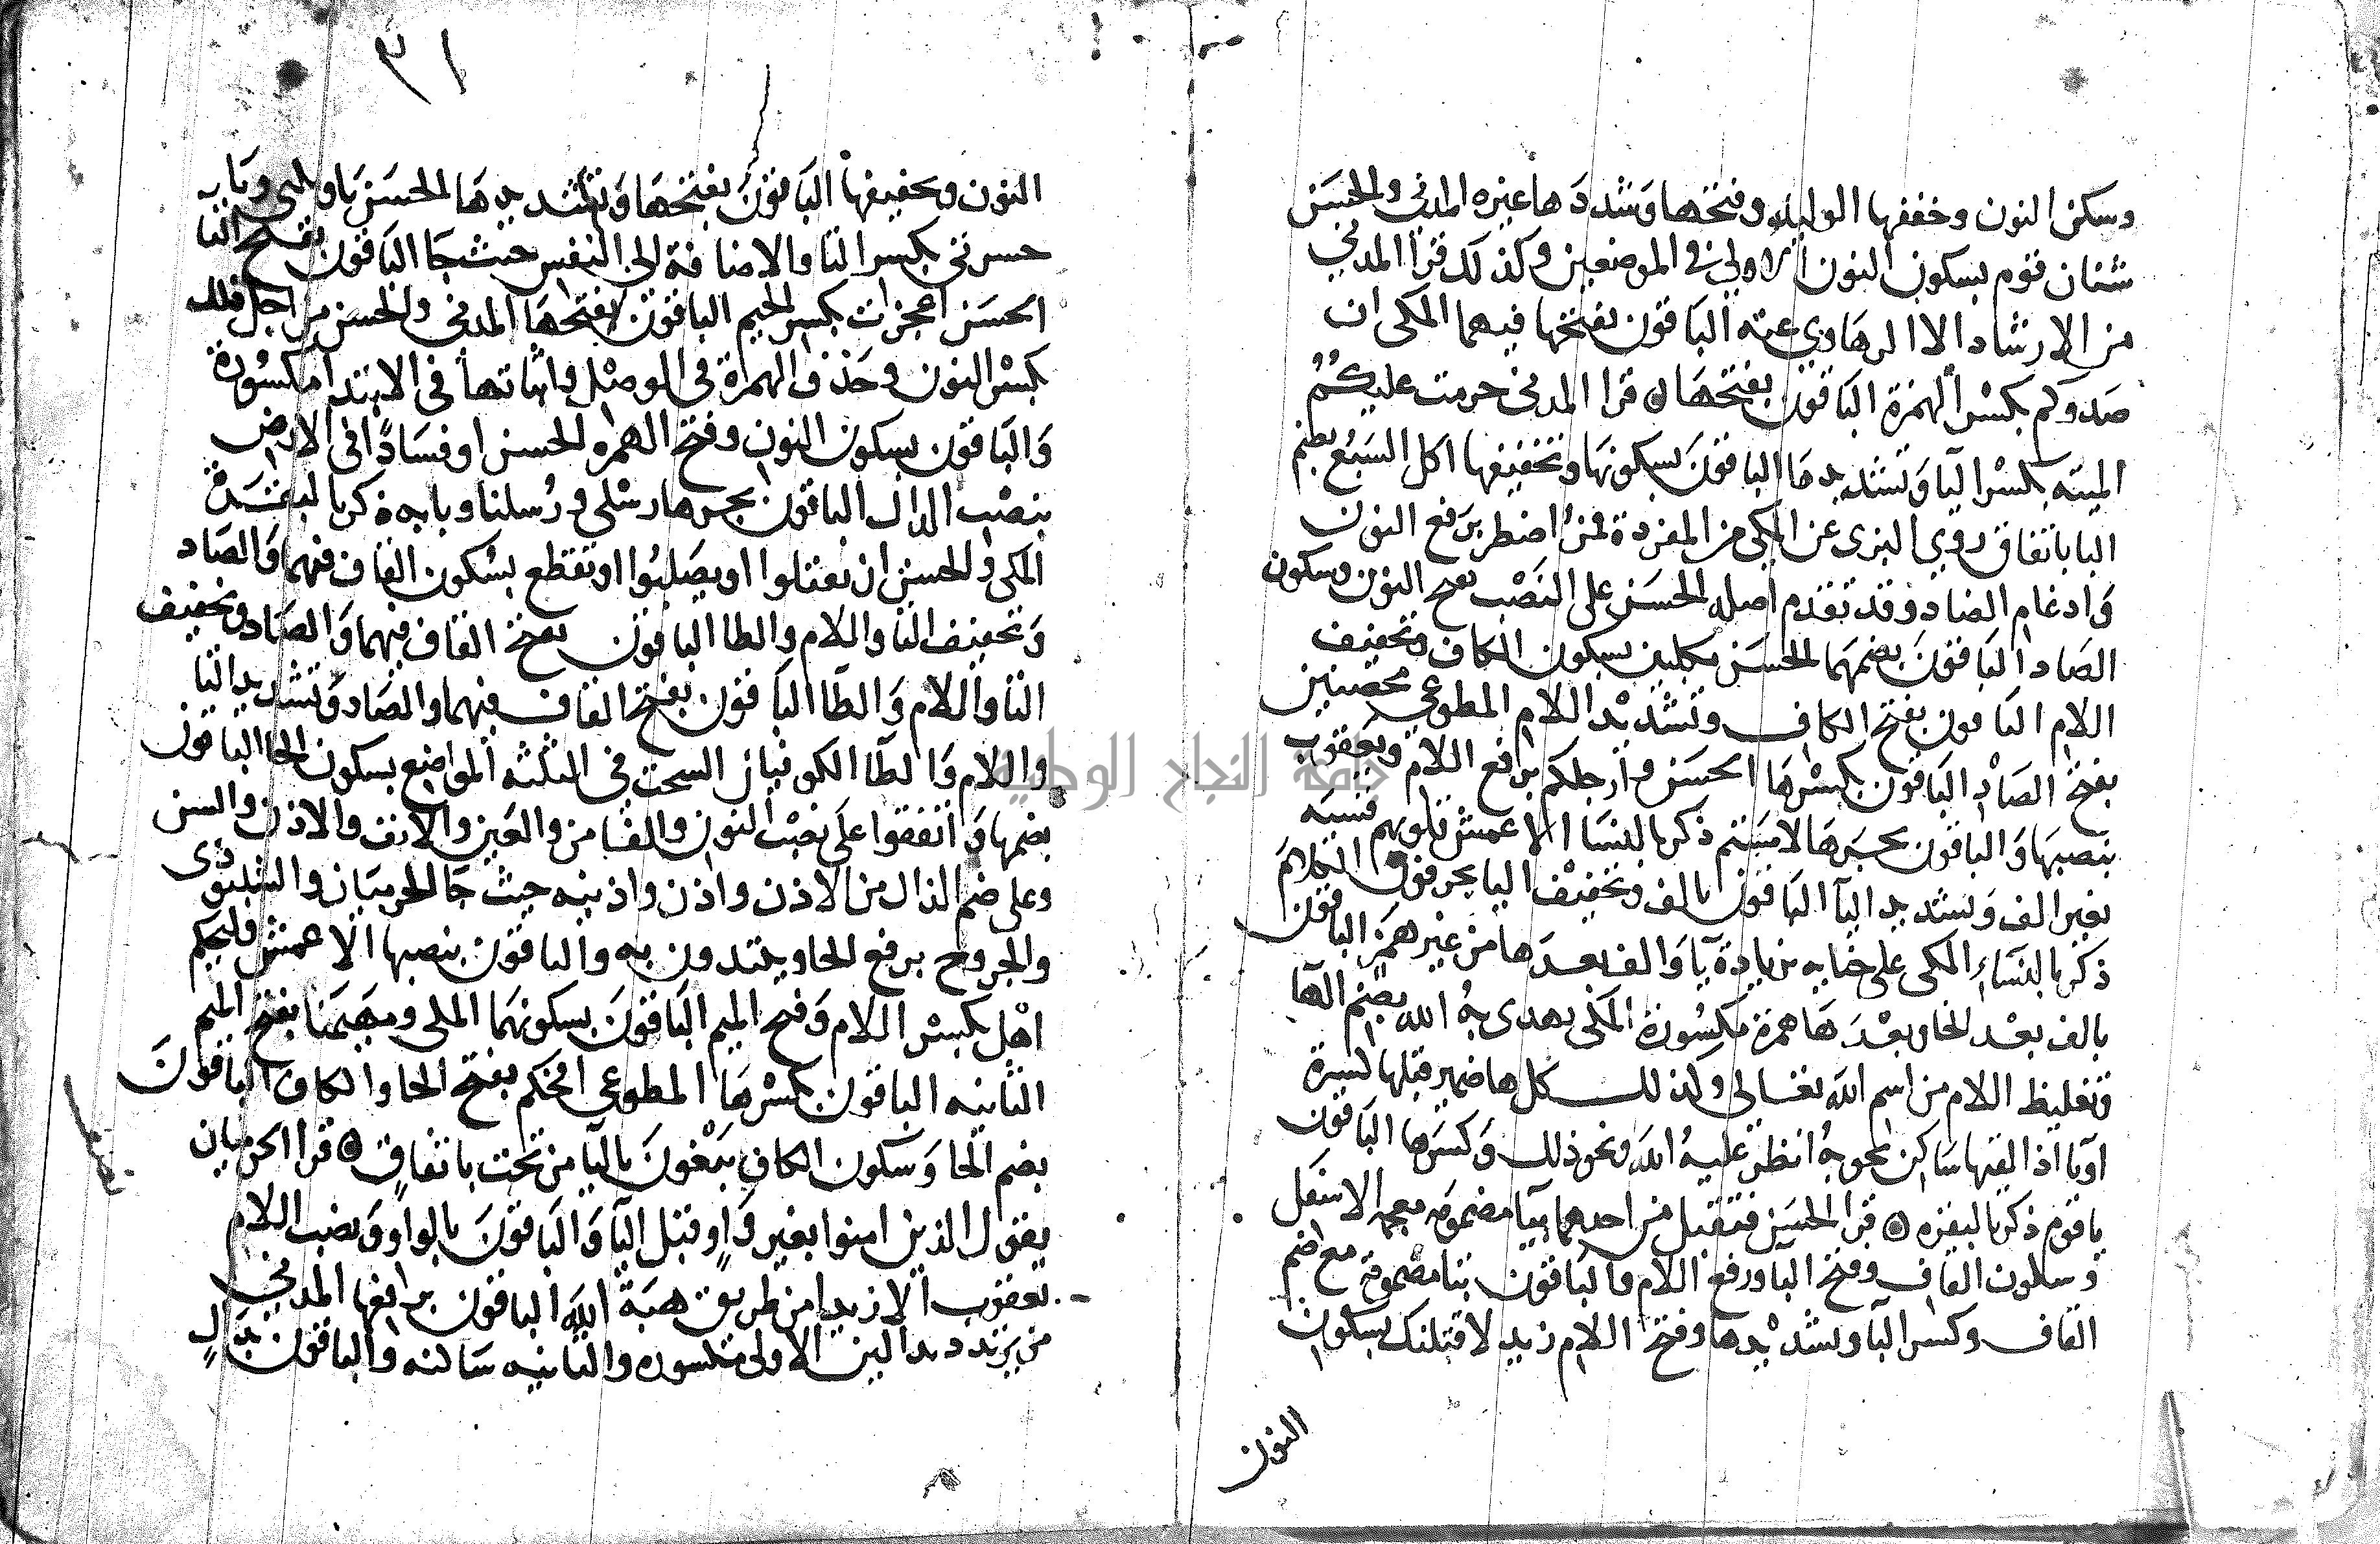 وسكن النون وخففها الوليد وفتحها وشددها غيره المدني والحسن
شنان قوم بسكون النون الاولى في الموضعين وكذلك قرا المدني
من الارشاد الا الرهاوي عنه الباقون بفتحها فيهما المكي ان
صدوكم بكسر الهمزة الباقون بفتحها ه قرا المدني حرمت عليكم
الميته بكسر اليا وتشديدها الباقون بسكونها وتخفيفها اكل السبع بضم
البا باتفاق روي البزى عن المكي من المفردة فمن اضطر برفع النون
وادغام الضاد وقد تقدم اصله الحسن على النصب بفتح النون وسكون
الصاد الباقون بضمهما الحسن مكلبين بسكون الكاف وتخفيف
اللام الباقون بفتح الكاف وتشديد اللام المطوعي محصنين
بفتح الصاد الباقون بكسرها الحسن وارجلكم برفع اللام ويعقوب
بنصبها والباقون بجرها لامستم ذكر بالنسا الاعمش قلوبهم قسيه
بغير الف وتشديد اليا الباقون بالف وتخفيف اليا يحرفون الكلام
ذكر بالنساء المكي على خيايه بزيادة يا والف بعدها من غير همز الباقون
بالف بعد الخا وبعدها همزة مكسورة المكي يهدى به الله بضم الها
وتغليظ اللام من اسم الله تعالى وكذلك كل ها ضمير قبلها كسرة
اويا اذا لقيها ساكن نحو به انظر عليه الله ونحو ذلك وكسرها الباقون
ياقوم ذكر بالبقره ه قرا الحسن فتقبل من احدهما بيا مضمومه معجمه الاسفل
وسكون القاف وفتح البا ورفع اللام والباقون بتا مضمومة مع ضم
القاف وكسر البا وتشديدها وفتح اللام زيد لاقتلنك بسكون
النون
٣١
النون وتخفيفها الباقون بفتحها وتشديدها الحسن ياويلتي وبابه
حسرتي بكسر التا والاضافة الى النفس حيث جا الباقون بفتح التا
الحسن اعجزت بكسر الجيم الباقون بفتحها المدني والحسن من اجل ذلك
بكسر النون وحذف الهمزة في الوصل واثباتها في الابتدا مكسورة
والباقون بسكون النون وفتح الهمزه الحسن اوفسادا في الارض
بنصب الدال الباقون بجرها رسلي ورسلنا وبابه ذكر بالبقرة
المكي والحسن ان يقتلوا او يصلبوا او تقطع بسكون القاف فيهما والصاد
وتخفيف التا واللام والطا الباقون بفتح القاف فيهما والصاد وتخفيف
التا واللام والطا الباقون بفتح القاف فيهما والصاد وتشديد التا
واللام والطا الكوفيان السحت في الثلثه المواضع بسكون الحا الباقون
بضمها واتفقوا على نصب النون والفا من والعين والانف والاذن والسن
وعلى ضم الذال من الاذن واذن واذنيه حيث جا الحرميان والشنبوذى
والجروح برفع الحا ويبتدون به والباقون بنصبها الاعمش وليحكم
اهل بكسر اللام وفتح الميم الباقون بسكونهما المكي ومهيمنا بفتح الميم
الثانيه الباقون بكسرها المطوعي افحكم بفتح الحا والكاف الباقون
بضم الحا وسكون الكاف يبغون باليا من تحت باتفاق ه قرا الحرميان
يقول الذين امنوا بغير واو قبل اليا والباقون بالواو ونصب اللام
يعقوب الا زيدا من طريق هبة الله الباقون برفعها المدني
من يرتدد بدالين الاولى مكسوره والثانيه ساكنه والباقون بدال
جامعة النجاح الوطنية